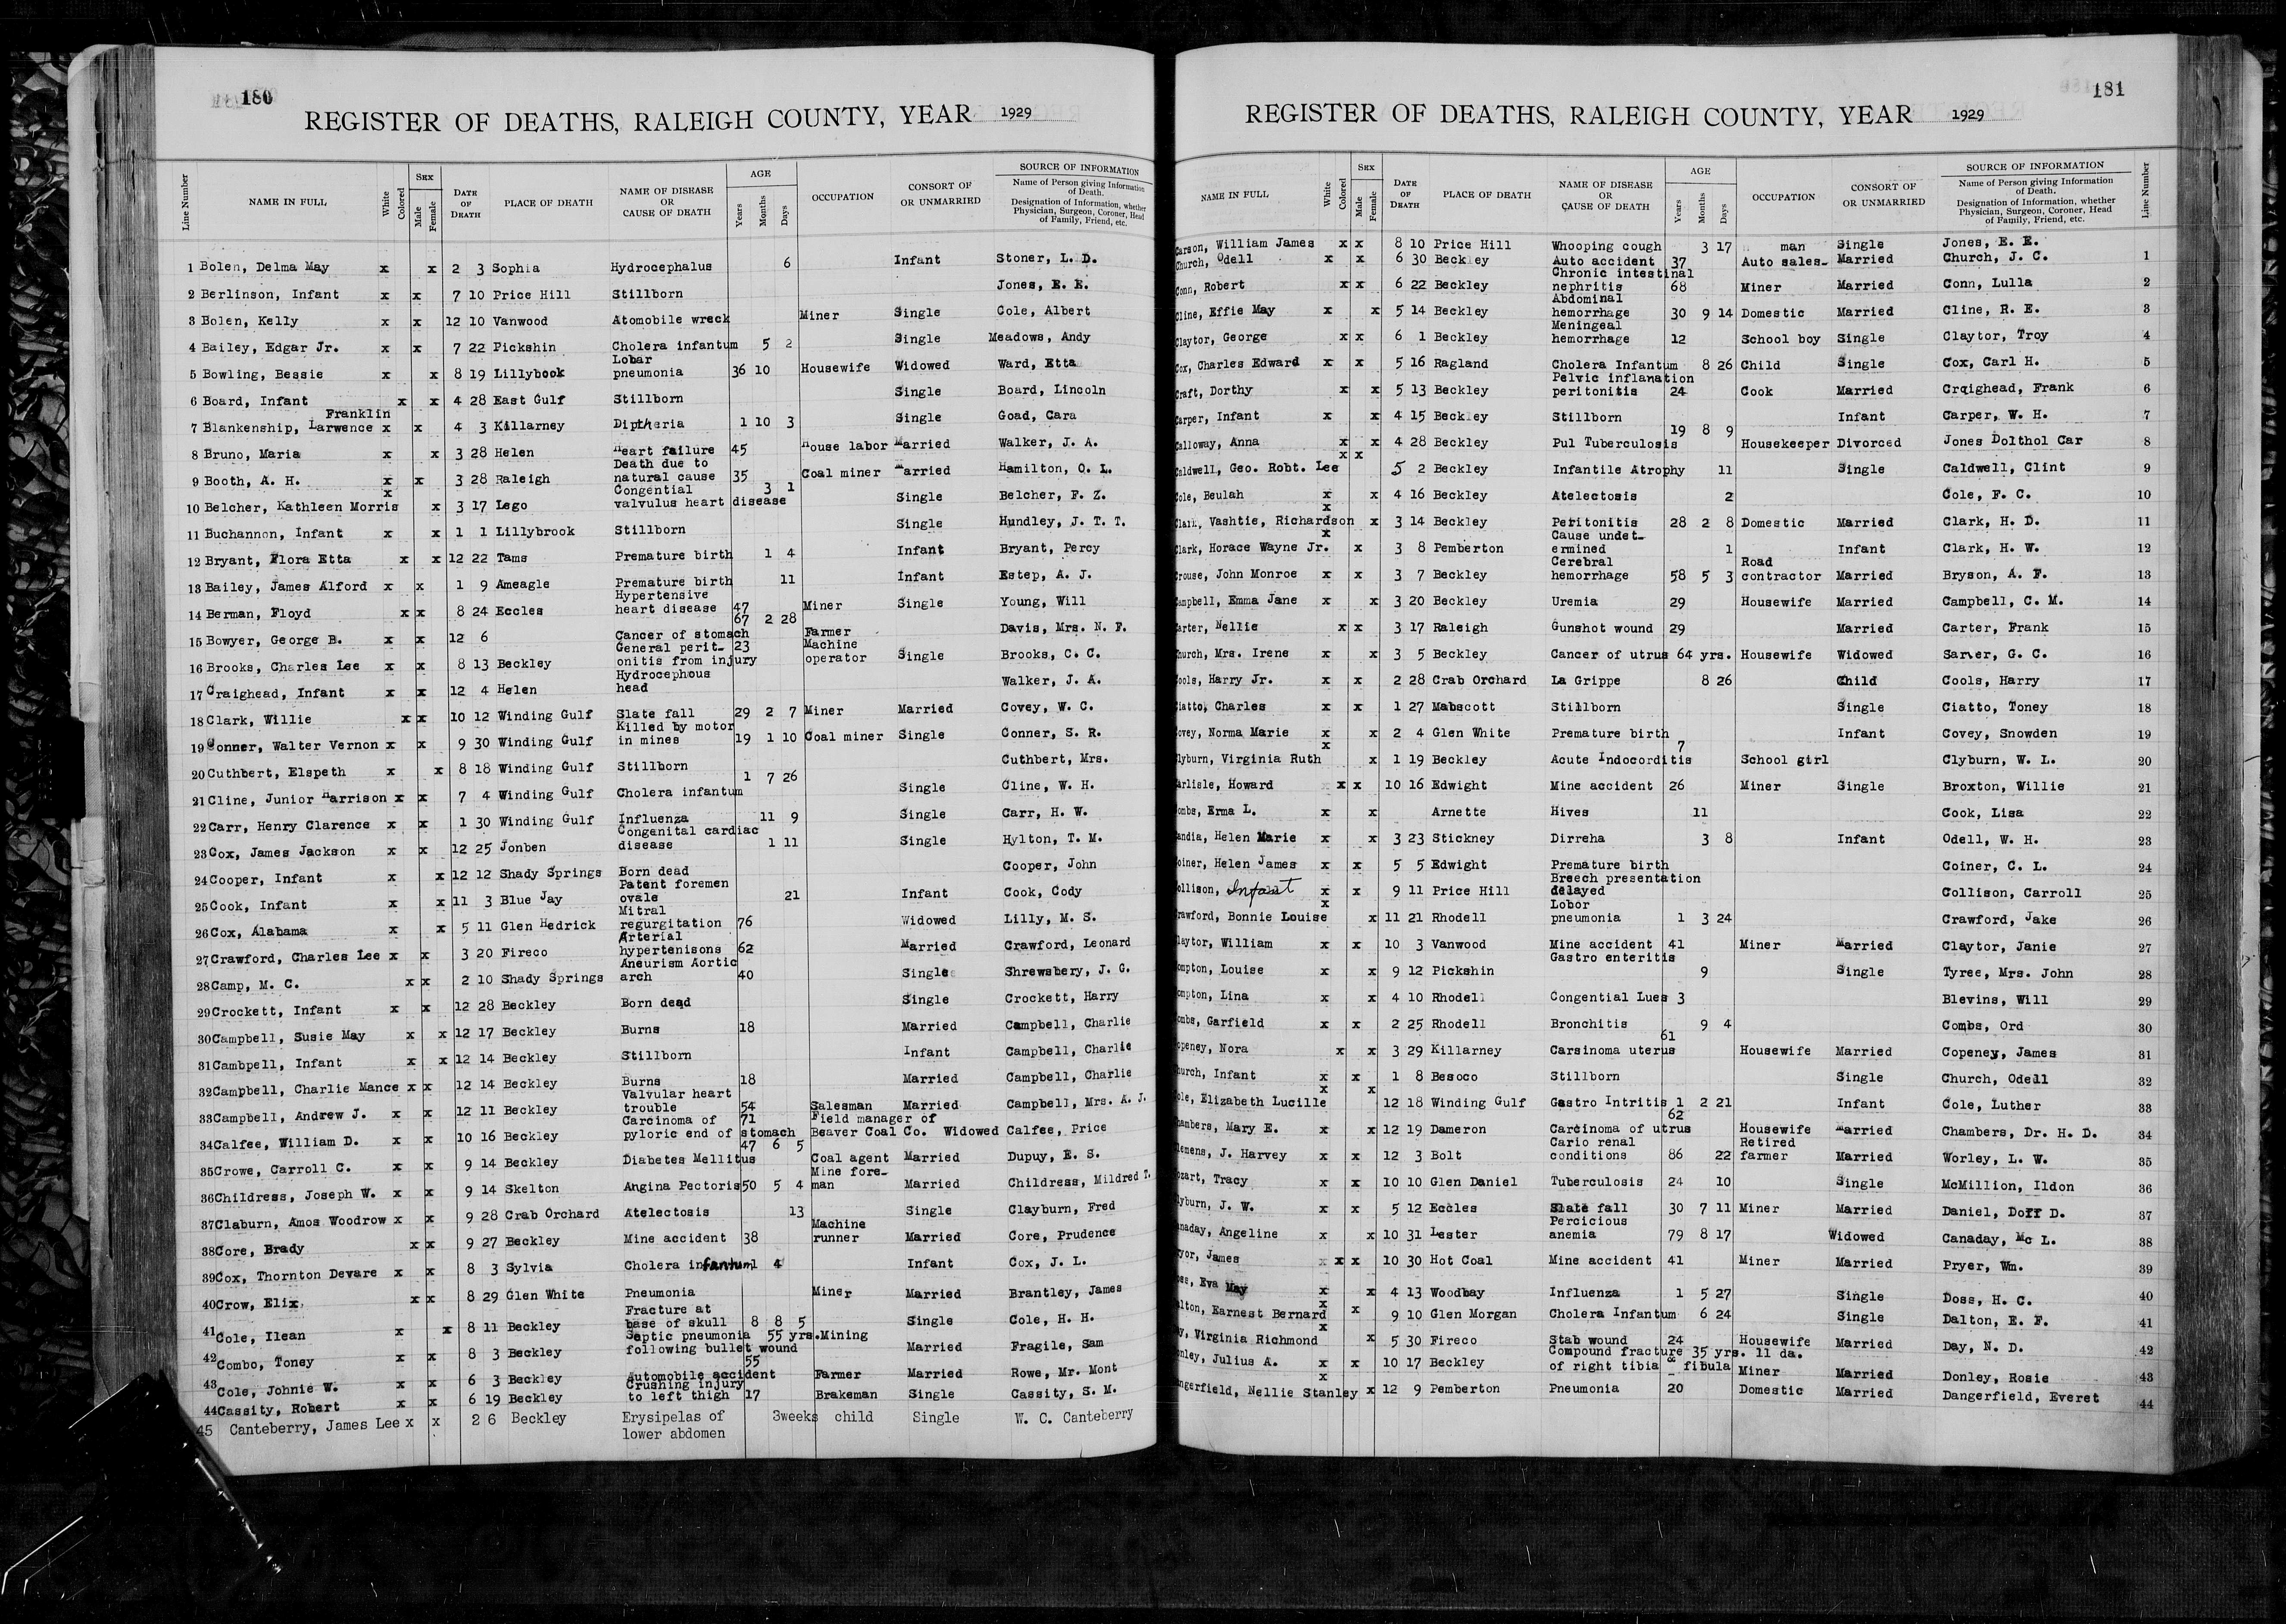 180
REGISTER OF DEATHS, RALEIGH COUNTY, YEAR 1929
Line Number NAME IN FULL White Colored SEX Male Female DATE OF DEATH PLACE OF DEATH NAME OF DISEASE OR CAUSE OF DEATH AGE Years Months Days OCCUPATION CONSORT OF OR UNMARRIED SOURCE OF INFORMATION Name of Person giving Information of Death. Designation of Information, whether Physician, Surgeon, Coroner, Head of Family, Friend, etc.
1 Bolen, Delma May x x 2 3 Sophia Hydrocephalus 6 Infant Stoner, L. D.
2 Berlinson, Infant x x 7 10 Price Hill Stillborn Jones, E. E.
3 Bolen, Kelly x x 12 10 Vanwood Atomobile wreck Miner Single Cole, Albert
4 Bailey, Edgar Jr. x x 7 22 Pickshin Cholera infantum 5 2 Single Meadows, Andy
5 Bowling, Bessie x x 8 19 Lillybook Lobar pneumonia 36 10 Housewife Widowed Ward, Etta
6 Board, Infant x x 4 28 East Gulf Stillborn Single Board, Lincoln
7 Blankenship, Larwence Franklin x x 4 3 Killarney Diptheria 1 10 3 Single Goad, Cara
8 Bruno, Maria x x 3 28 Helen Heart failure 45 House labor Married Walker, J. A.
9 Booth, A. H. x x 3 28 Raleigh Death due to natural cause 35 Coal miner Married Hamilton, O. L.
10 Belcher, Kathleen Morris x x 3 17 Lego Congential valvulus heart disease 3 1 Single Belcher, F. Z.
11 Buchannon, Infant x x 1 1 Lillybrook Stillborn Single Hundley, J. T. T.
12 Bryant, Flora Etta x x 12 22 Tams Premature birth 1 4 Infant Bryant, Percy
13 Bailey, James Alford x x 1 9 Ameagle Premature birth 11 Infant Estep, A. J.
14 Berman, Floyd x x 8 24 Eccles Hypertensive heart disease 47 Miner Single Young, Will
15 Bowyer, George B. x x 12 6 Cancer of stomach 67 2 28 Farmer Davis, Mrs. N. F.
16 Brooks, Charles Lee x x 8 13 Beckley General perit- onitis from injury 23 Machine operator Single Brooks, C. C.
17 Craighead, Infant x x 12 4 Helen Hydrocephous head Walker, J. A.
18 Clark, Willie x x 10 12 Winding Gulf Slate fall 29 2 7 Miner Married Covey, W. C.
19 Conner, Walter Vernon x x 9 30 Winding Gulf Killed by motor in mines 19 1 10 Coal miner Single Conner, S. R.
20 Cuthbert, Elspeth x x 8 18 Winding Gulf Stillborn Cuthbert, Mrs.
21 Cline, Junior Harrison x x 7 4 Winding Gulf Cholera infantum 1 7 26 Single Cline, W. H.
22 Carr, Henry Clarence x x 1 30 Winding Gulf Influenza 11 9 Single Carr, H. W.
23 Cox, James Jackson x x 12 25 Jonben Congenital cardiac disease 1 11 Single Hylton, T. M.
24 Cooper, Infant x x 12 12 Shady Springs Born dead Cooper, John
25 Cook, Infant x x 11 3 Blue Jay Patent foremen ovale 21 Infant Cook, Cody
26 Cox, Alabama x x 5 11 Glen Hedrick Mitral regurgitation 76 Widowed Lilly, M. S.
27 Crawford, Charles Lee x x 3 20 Fireco Arterial hypertenisons 62 Married Crawford, Leonard
28 Camp, M. C. x x 2 10 Shady Springs Aneurism Aortic arch 40 Single Shrewsbery, J. G.
29 Crockett, Infant x x 12 28 Beckley Born dead Single Crockett, Harry
30 Campbell, Susie May x x 12 17 Beckley Burns 18 Married Campbell, Charlie
31 Cambpell, Infant x x 12 14 Beckley Stillborn Infant Campbell, Charlie
32 Campbell, Charlie Mance x x 12 14 Beckley Burns 18 Married Campbell, Charlie
33 Campbell, Andrew J. x x 12 11 Beckley Valvular heart trouble 54 Salesman Married Campbell, Mrs. A. J.
34 Calfee, William D. x x 10 16 Beckley Carcinoma of pyloric end of stomach 71 Field manager of Beaver Coal Co. Widowed Calfee, Price
35 Crowe, Carroll C. x x 9 14 Beckley Diabetes Mellitus 47 6 5 Coal agent Married Dupuy, E. S.
36 Childress, Joseph W. x x 9 14 Skelton Angina Pectoris 50 5 4 Mine fore- man Married Childress, Mildred T.
37 Claburn, Amos Woodrow x x 9 28 Crab Orchard Atelectosis 13 Single Clayburn, Fred
38 Core, Brady x x 9 27 Beckley Mine accident 38 Machine runner Married Core, Prudence
39 Cox, Thornton Devare x x 8 3 Sylvia Cholera infantum 1 4 Infant Cox, J. L.
40 Crow, Elix x x 8 29 Glen White Pneumonia Miner Married Brantley, James
41 Cole, Ilean x x 8 11 Beckley Fracture at base of skull 8 8 5 Single Cole, H. H.
42 Combo, Toney x x 8 3 Beckley Septic pneumonia following bullet wound 55 yrs. Mining Married Fragile, Sam
43 Cole, Johnie W. x x 6 3 Beckley Automobile accident 55 Farmer Married Rowe, Mr. Mont
44 Cassity, Robert x x 6 19 Beckley Crushing injury to left thigh 17 Brakeman Single Cassity, S. M.
45 Canteberry, James Lee x x 2 6 Beckley Erysipelas of lower abdomen 3weeks child Single W. C. Canteberry
181
REGISTER OF DEATHS, RALEIGH COUNTY, YEAR 1929
NAME IN FULL White Colored SEX Male Female DATE OF DEATH PLACE OF DEATH NAME OF DISEASE OR CAUSE OF DEATH AGE Years Months Days OCCUPATION CONSORT OF OR UNMARRIED SOURCE OF INFORMATION Name of Person giving Information of Death. Designation of Information, whether Physician, Surgeon, Coroner, Head of Family, Friend, etc. Line Number
Carson, William James x x 8 10 Price Hill Whooping cough 3 17 Single Jones, E. E.
Church, Odell x x 6 30 Beckley Auto accident 37 Auto sales- man Married Church, J. C. 1
Conn, Robert x x 6 22 Beckley Chronic intestinal nephritis 68 Miner Married Conn, Lulla 2
Cline, Effie May x x 5 14 Beckley Abdominal hemorrhage 30 9 14 Domestic Married Cline, R. E. 3
Claytor, George x x 6 1 Beckley Meningeal hemorrhage 12 School boy Single Claytor, Troy 4
Cox, Charles Edward x x 5 16 Ragland Cholera Infantum 8 26 Child Single Cox, Carl H. 5
Craft, Dorthy x x 5 13 Beckley Pelvic inflamation peritonitis 24 Cook Married Crqighead, Frank 6
Carper, Infant x x 4 15 Beckley Stillborn Infant Carper, W. H. 7
Calloway, Anna x x 4 28 Beckley Pul Tuberculosis 19 8 9 Housekeeper Divorced Jones Dolthol Car 8
Caldwell, Geo. Robt. Lee x x 5 2 Beckley Infantile Atrophy 11 Single Caldwell, Clint 9
Cole, Beulah x x 4 16 Beckley Atelectosis 2 Cole, F. C. 10
Clark, Vashtie, Richardson x x 3 14 Beckley Peritonitis 28 2 8 Domestic Married Clark, H. D. 11
Clark, Horace Wayne Jr. x x 3 8 Pemberton Cause undet- ermined 1 Infant Clark, H. W. 12
Crouse, John Monroe x x 3 7 Beckley Cerebral hemorrhage 58 5 3 Road contractor Married Bryson, A. F. 13
Campbell, Emma Jane x x 3 20 Beckley Uremia 29 Housewife Married Campbell, C. M. 14
Carter, Nellie x x 3 17 Raleigh Gunshot wound 29 Married Carter, Frank 15
Church, Mrs. Irene x x 3 5 Beckley Cancer of utrus 64 yrs. Housewife Widowed Sarver, G. C. 16
Cools, Harry Jr. x x 2 28 Crab Orchard La Grippe 8 26 Child Cools, Harry 17
Ciatto, Charles x x 1 27 Mabscott Stillborn Single Ciatto, Toney 18
Covey, Norma Marie x x 2 4 Glen White Premature birth Infant Covey, Snowden 19
Clyburn, Virginia Ruth x x 1 19 Beckley Acute Indocorditis 7 School girl Clyburn, W. L. 20
Carlisle, Howard x x 10 16 Edwight Mine accident 26 Miner Single Broxton, Willie 21
ombs, Erma L. x x Arnette Hives 11 Cook, Lisa 22
andia, Helen Marie x x 3 23 Stickney Dirreha 3 8 Infant Odell, W. H. 23
oiner, Helen James x x 5 5 Edwight Premature birth Coiner, C. L. 24
ollison, Infant x x 9 11 Price Hill Breech presentation delayed Collison, Carroll 25
rawford, Bonnie Louise x x 11 21 Rhodell Lobor pneumonia 1 3 24 Crawford, Jake 26
laytor, William x x 10 3 Vanwood Mine accident 41 Miner Married Claytor, Janie 27
ompton, Louise x x 9 12 Pickshin Gastro enteritis 9 Single Tyree, Mrs. John 28
ompton, Lina x x 4 10 Rhodell Congential Lues 3 Blevins, Will 29
ombs, Garfield x x 2 25 Rhodell Bronchitis 9 4 Combs, Ord 30
openey, Nora x x 3 29 Killarney Carsinoma uterus 61 Housewife Married Copeney, James 31
hurch, Infant x x 1 8 Besoco Stillborn Single Church, Odell 32
ole, Elizabeth Lucille x x 12 18 Winding Gulf Gastro Intritis 1 2 21 Infant Cole, Luther 33
hambers, Mary E. x x 12 19 Dameron Carcinoma of utrus 62 Housewife Married Chambers, Dr. H. D. 34
lemens, J. Harvey x x 12 3 Bolt Cario renal conditions 86 22 Retired farmer Married Worley, L. W. 35
ozart, Tracy x x 10 10 Glen Daniel Tuberculosis 24 10 Single McMillion, Ildon 36
lyburn, J. W. x x 5 12 Eccles Slate fall 30 7 11 Miner Married Daniel, Doff D. 37
anaday, Angeline x x 10 31 Lester Percicious anemia 79 8 17 Widowed Canaday, Mc L. 38
yor, James x x 10 30 Hot Coal Mine accident 41 Miner Married Pryer, Wm. 39
oss, Eva May x x 4 13 Woodbay Influenza 1 5 27 Single Doss, H. C. 40
alton, Earnest Bernard x x 9 10 Glen Morgan Cholera Infantum 6 24 Single Dalton, E. F. 41
ay, Virginia Richmond x x 5 30 Fireco Stab wound 24 Housewife Married Day, N. D. 42
onley, Julius A. x x 10 17 Beckley Compound fracture of right tibia & fibula 35 yrs. 11 da. Miner Married Donley, Rosie 43
angerfield, Nellie Stanley x x 12 9 Pemberton Pneumonia 20 Domestic Married Dangerfield, Everet 44